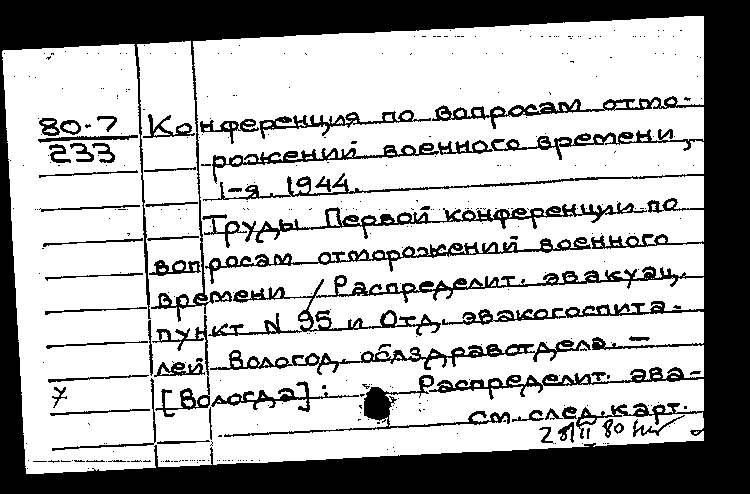 80-7 Конференция по вопросам отмо-
233 рожений военного времени,
1-я. 1944.
Труды Первой конференции по
вопросам отморожений военного
времени / Распределит. эвакуац.
пункт N 95 и Отд. эвакогоспита-
лей Вологод. облздравотдела. —
[Вологда]: Распределит. эва-
см. след. карт.
28/II 80